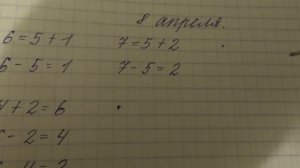 8 апреля.
6 = 5 + 1 7 = 5 + 2
6 - 5 = 1 7 - 5 = 2
4 + 2 = 6
- 2 = 4